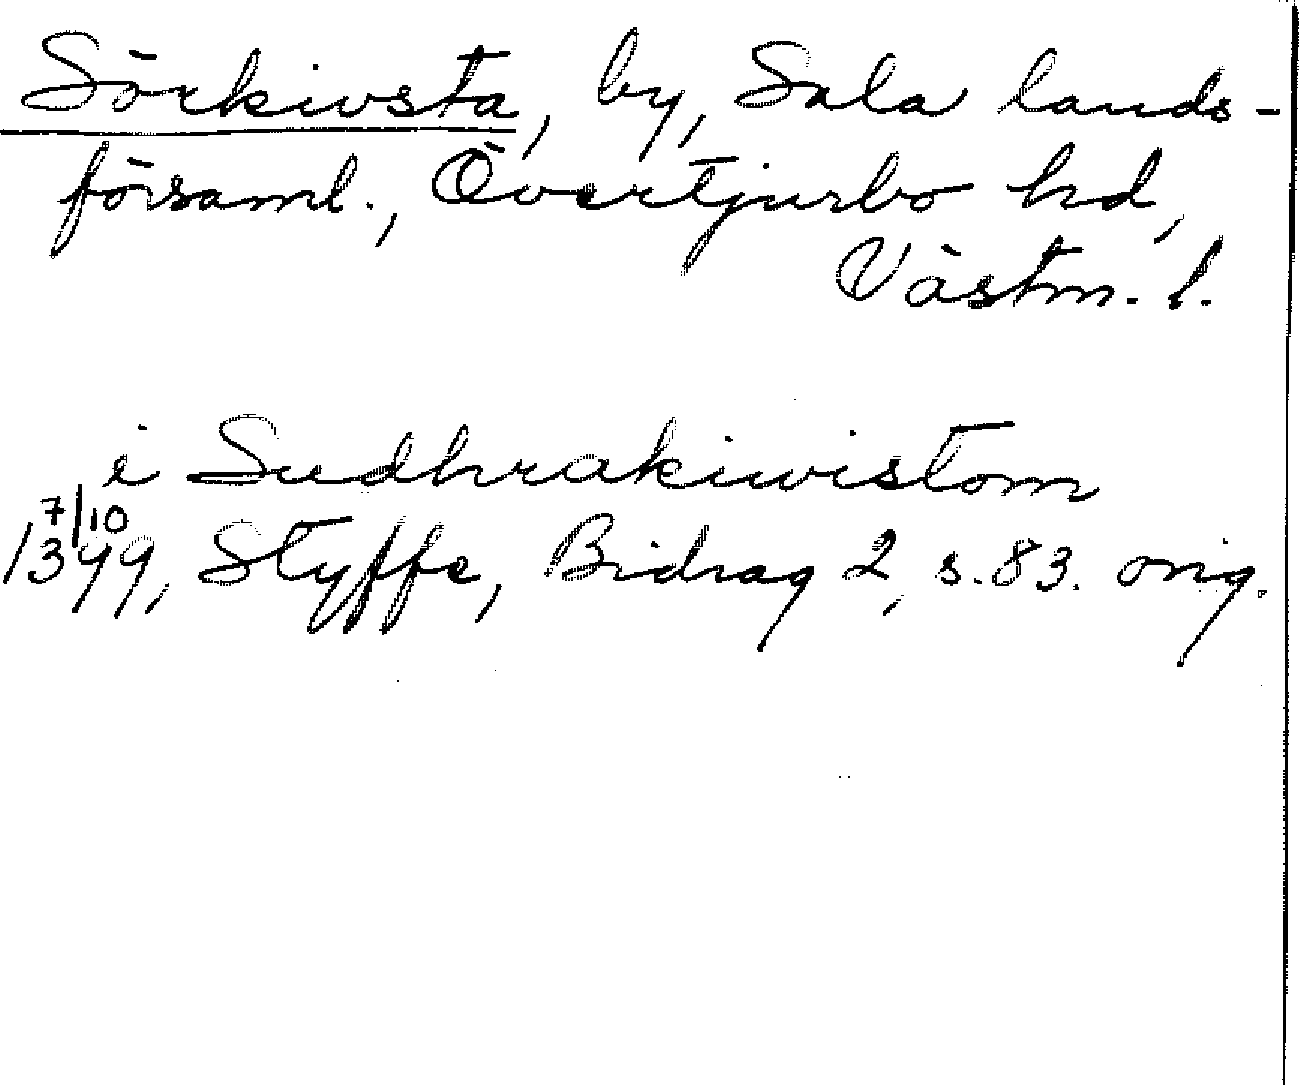 Sörkivsta, by, Sala lands-
församl., Övertjurbo hd,
Västm. l.
i Sudhrakiwistom
7/10
1399, Styffe, Bidrag 2, s. 83. orig.